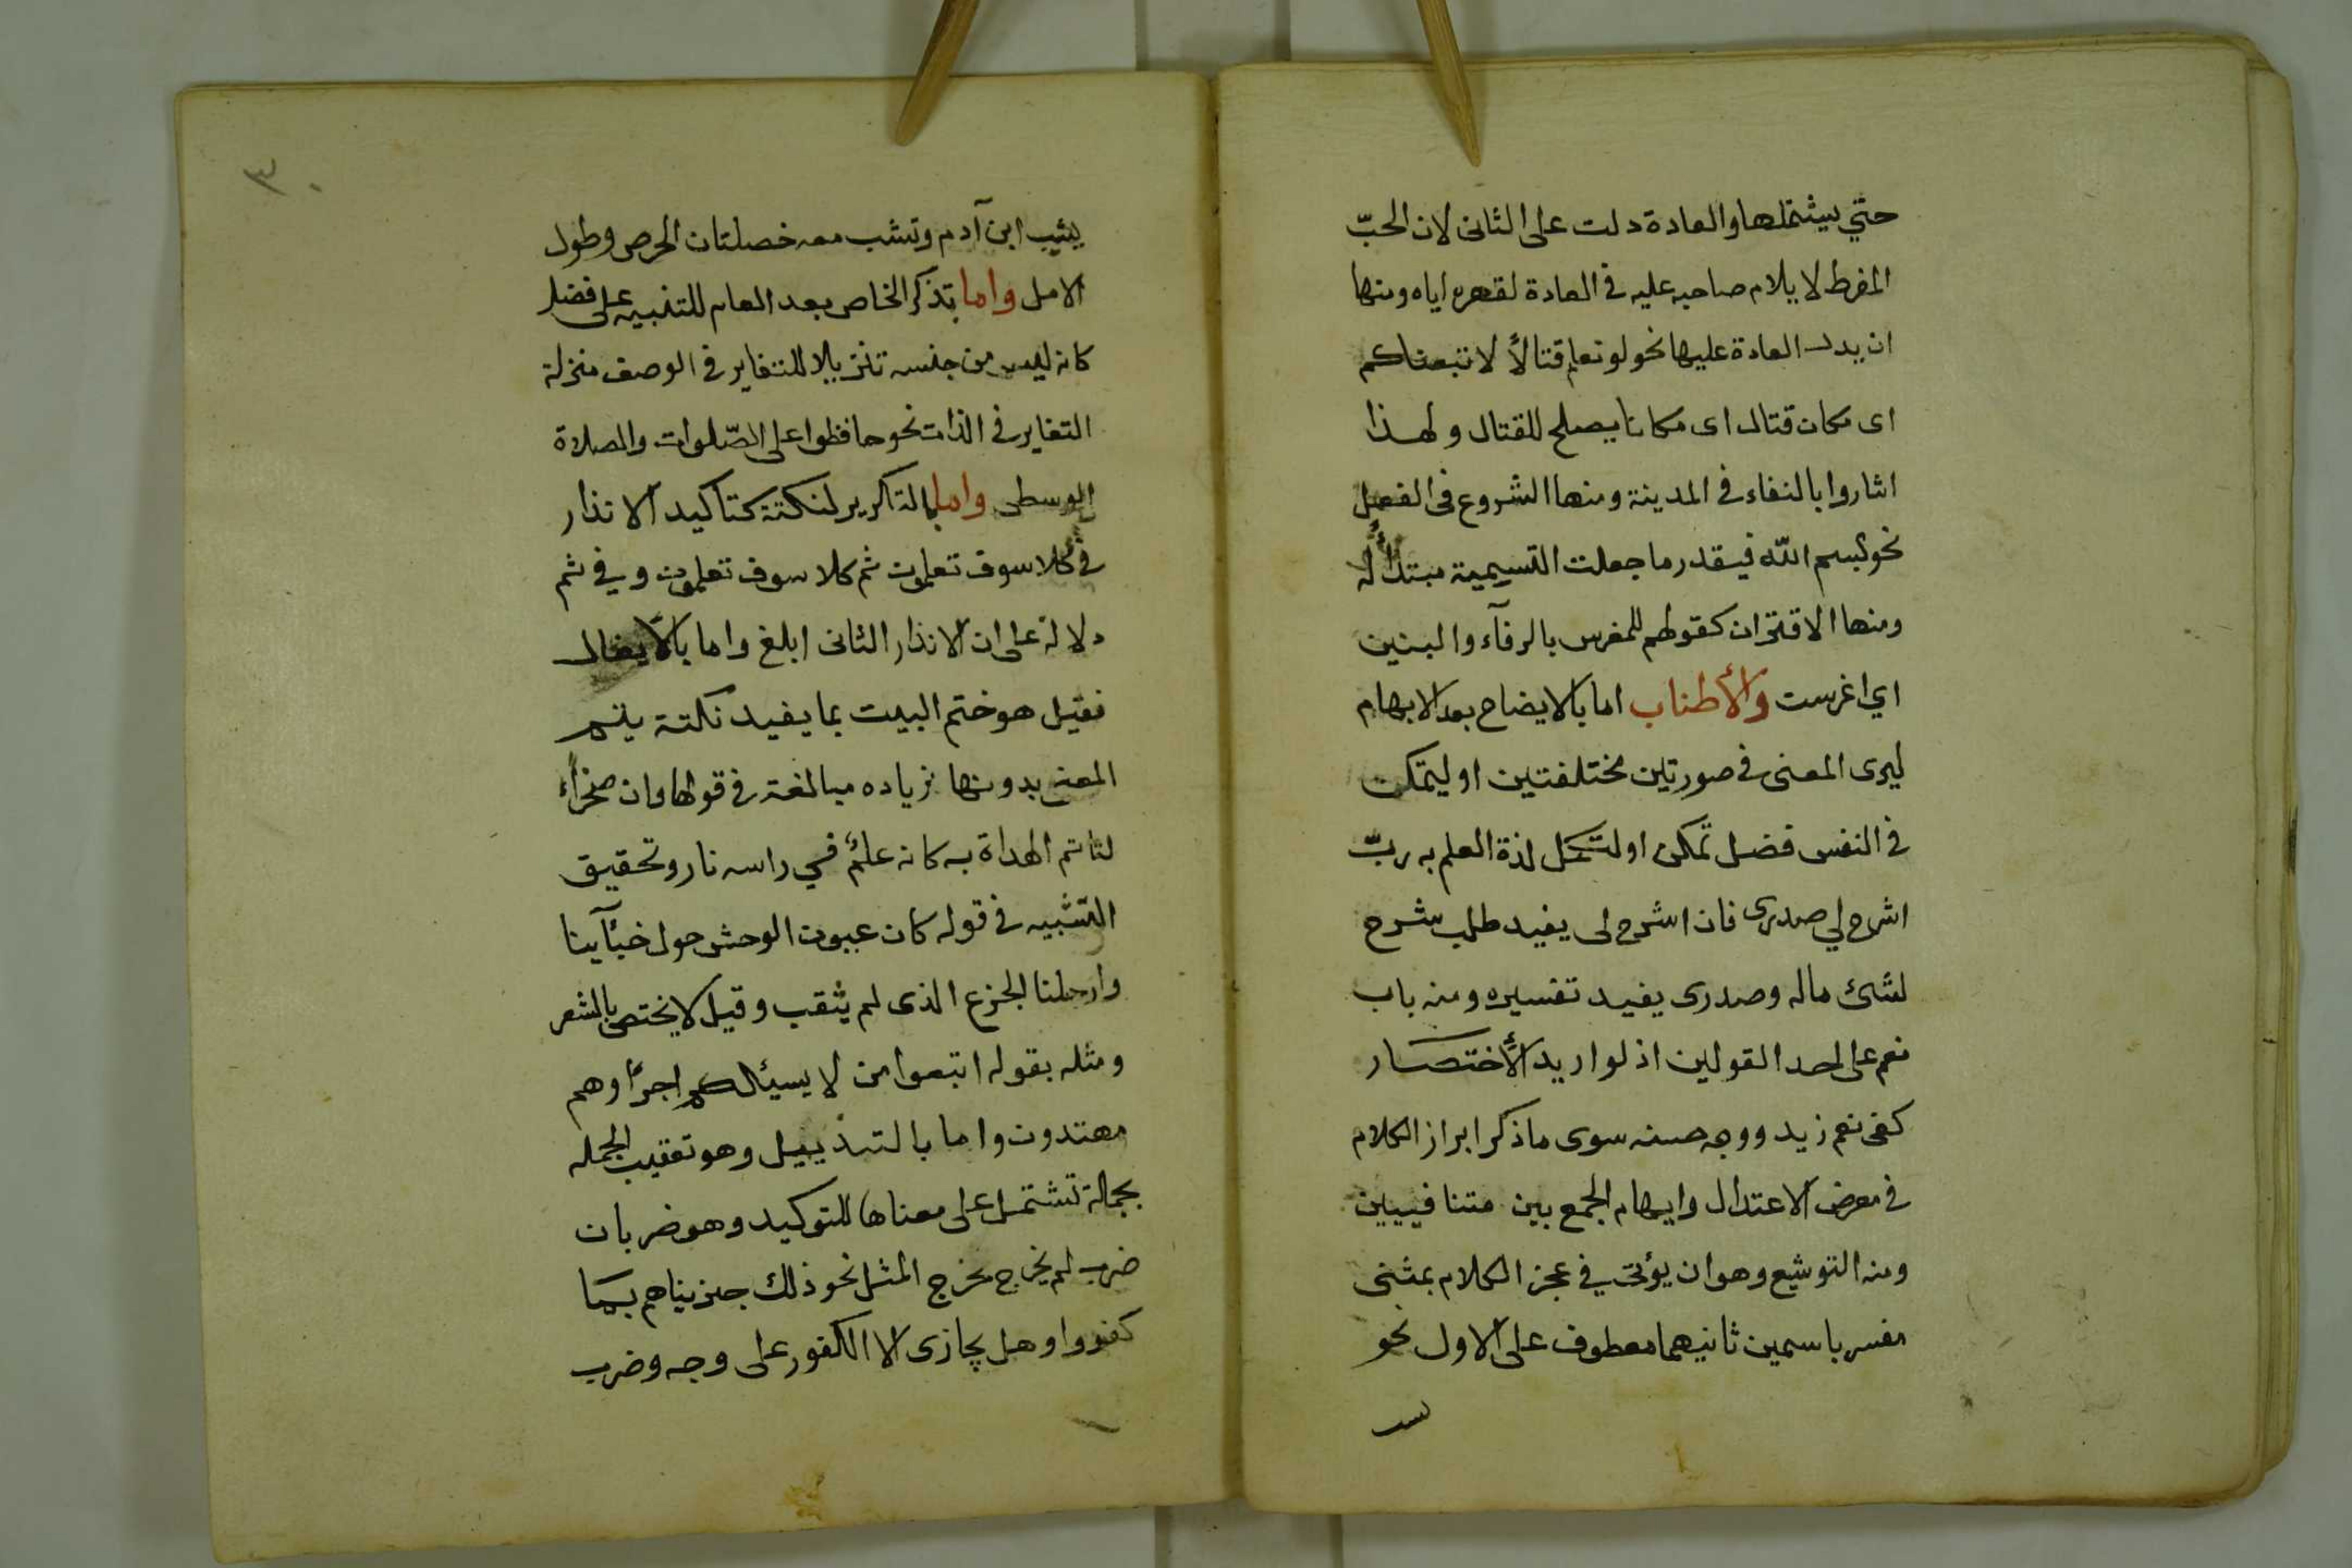 حتي يشتملها والعادة دلت على الثانى لان الحبّ
المفرط لا يلام صاحبه عليه فى العادة لقهره اياه ومنها
ان يدل العادة عليها نحو لو نعلم قتالاً لاتبعناكم
اى مكان قتال اى مكانا يصلح للقتال ولهذا
اشاروا بالنفاء فى المدينة ومنها الشروع فى الفعل
نحو بسم اللّه فيقدر ما جعلت التسيمية مبتدأ له
ومنها الاقتران كقولهم للمغرس بالرفآء والبنين
اي اغرست والأطناب اما بالايضاح بعد الابهام
ليرى المعنى فى صورتين مختلفتين او ليتمكن
فى النفس فضل تمكن او لتكمل لذة العلم به ربّ
اشرح لي صدرى فان اشرح لى يفيد طلب شرح
لشئ ماله وصدرى يفيد تفسيره ومنه باب
نعم على احد القولين اذ لو اريد الأختصار
كفى نعم زيد ووجه حسنه سوى ما ذكر ابراز الكلام
فى معرض الاعتدال وايهام الجمع بين متنافيين
ومنه التوشيع وهو ان يؤتى في عجز الكلام بمثنى
مفسر باسمين ثانيهما معطوف على الاول نحو
٣٠
يشيب ابن آدم وتشب معه خصلتان الحرص وطول
الامل واما بذكر الخاص بعد العام للتنبيه على فضله
كانه ليس من جنسه تنزيلا للتغاير فى الوصف منزلة
التغاير فى الذات نحو حافظوا على الصّلوات والصلاة
الوسطى واما بالتكرير لنكتة كتاكيد الانذار
فى كلا سوف تعلمون ثم كلا سوف تعلمون وفي ثم
دلالة على ان الانذار الثانى ابلغ واما بالايغال
فقيل هو ختم البيت بما يفيد نكتة يتم
المعنى بدونها زياده مبالغة فى قولها وان صخراً
لتاتم الهداة به كانه علمٌ في راسه نار وتحقيق
التشبيه فى قوله كان عيون الوحش حول خبآينا
وارحلنا الجزع الذى لم يثقب وقيل لا يختص بالشعر
ومثله بقوله اتبعوا من لا يسيئلكم اجرًا وهم
مهتدون واما بالتذييل وهو تعقيب الجمله
بجملة تشتمل على معناها للتوكيد وهو ضربان
ضرب لم يخرج مخرج المثل نحو ذلك جزيناهم بما
كفروا وهل يجازى الا الكفور على وجه وضرب